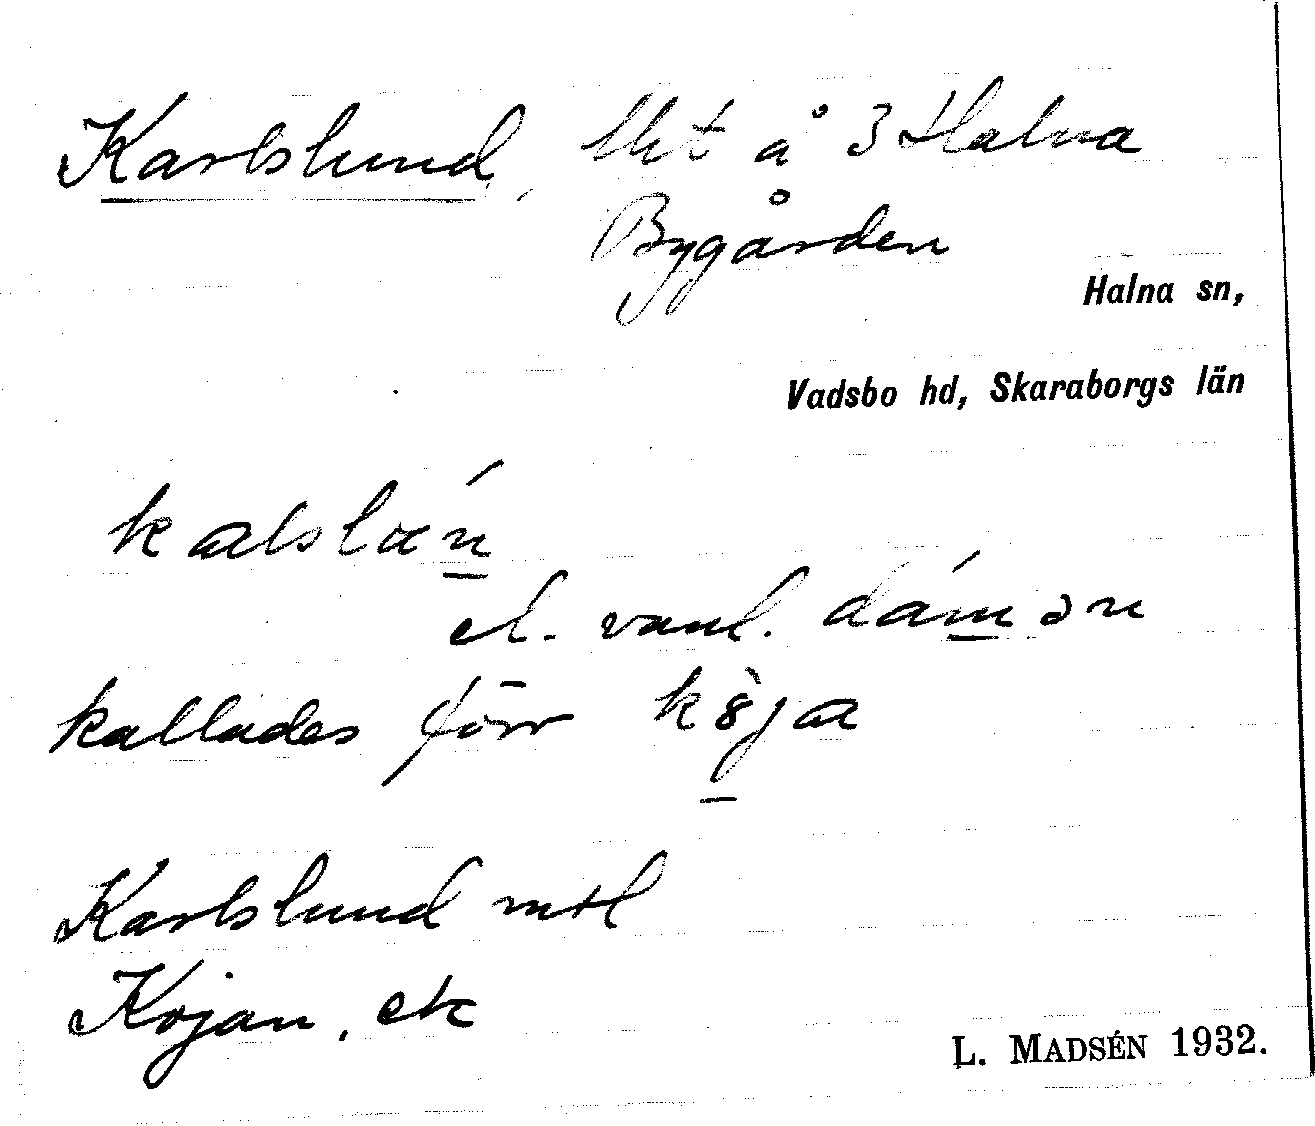 Karlslund, lht å 3 Halna
Bygården
Halna sn,
Vadsbo hd, Skaraborgs län
kalslän
el. vanl. damən
kallades förr köja
Karlslund mtl
Kojan, ek
L. MADSÉN 1932.